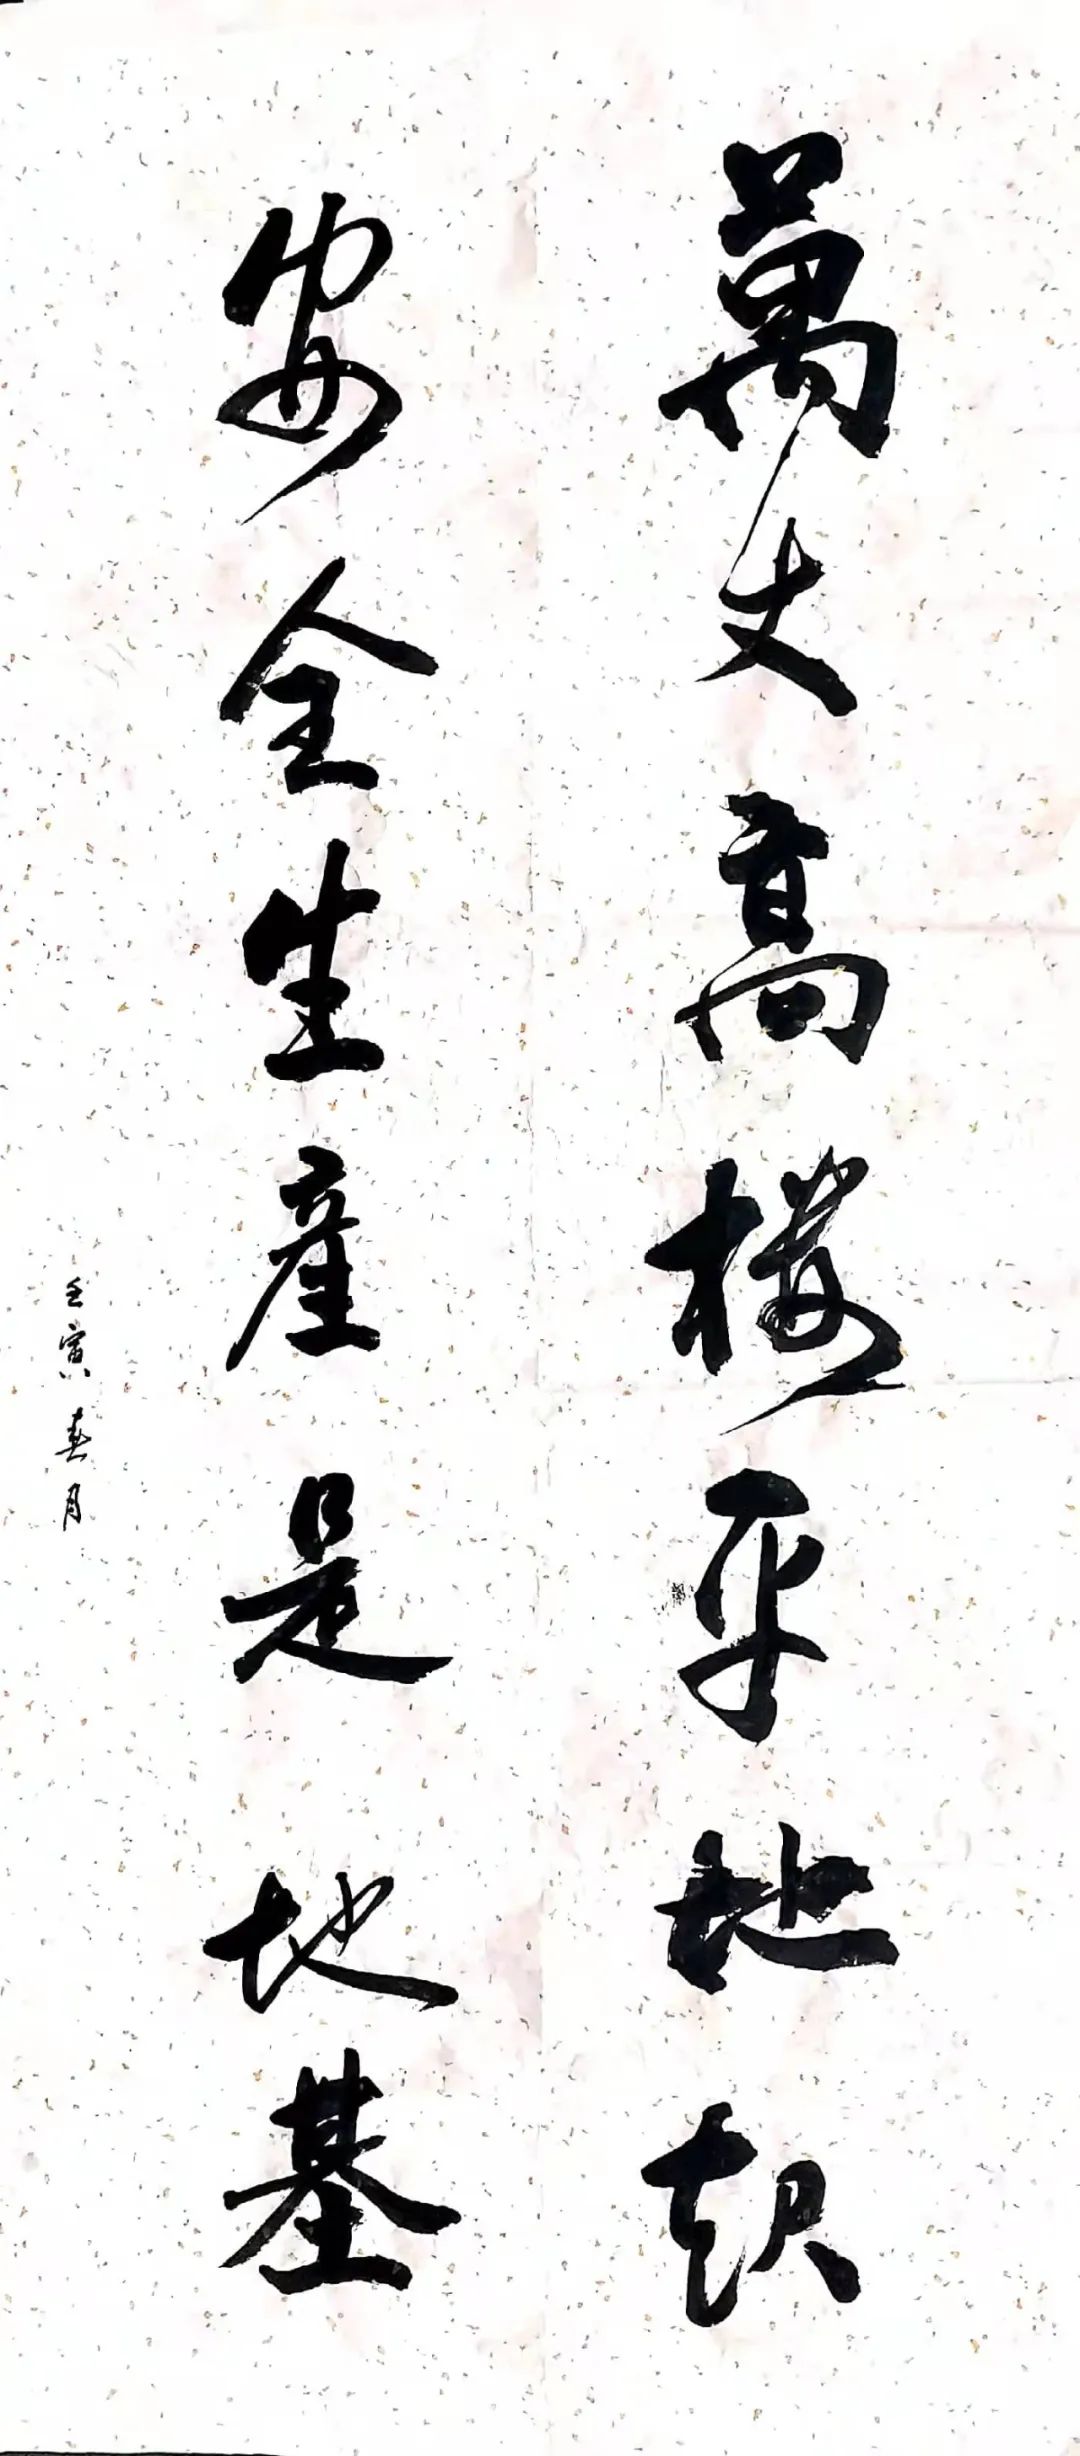 萬丈高楼平地起
安全生産是地基
壬寅春月